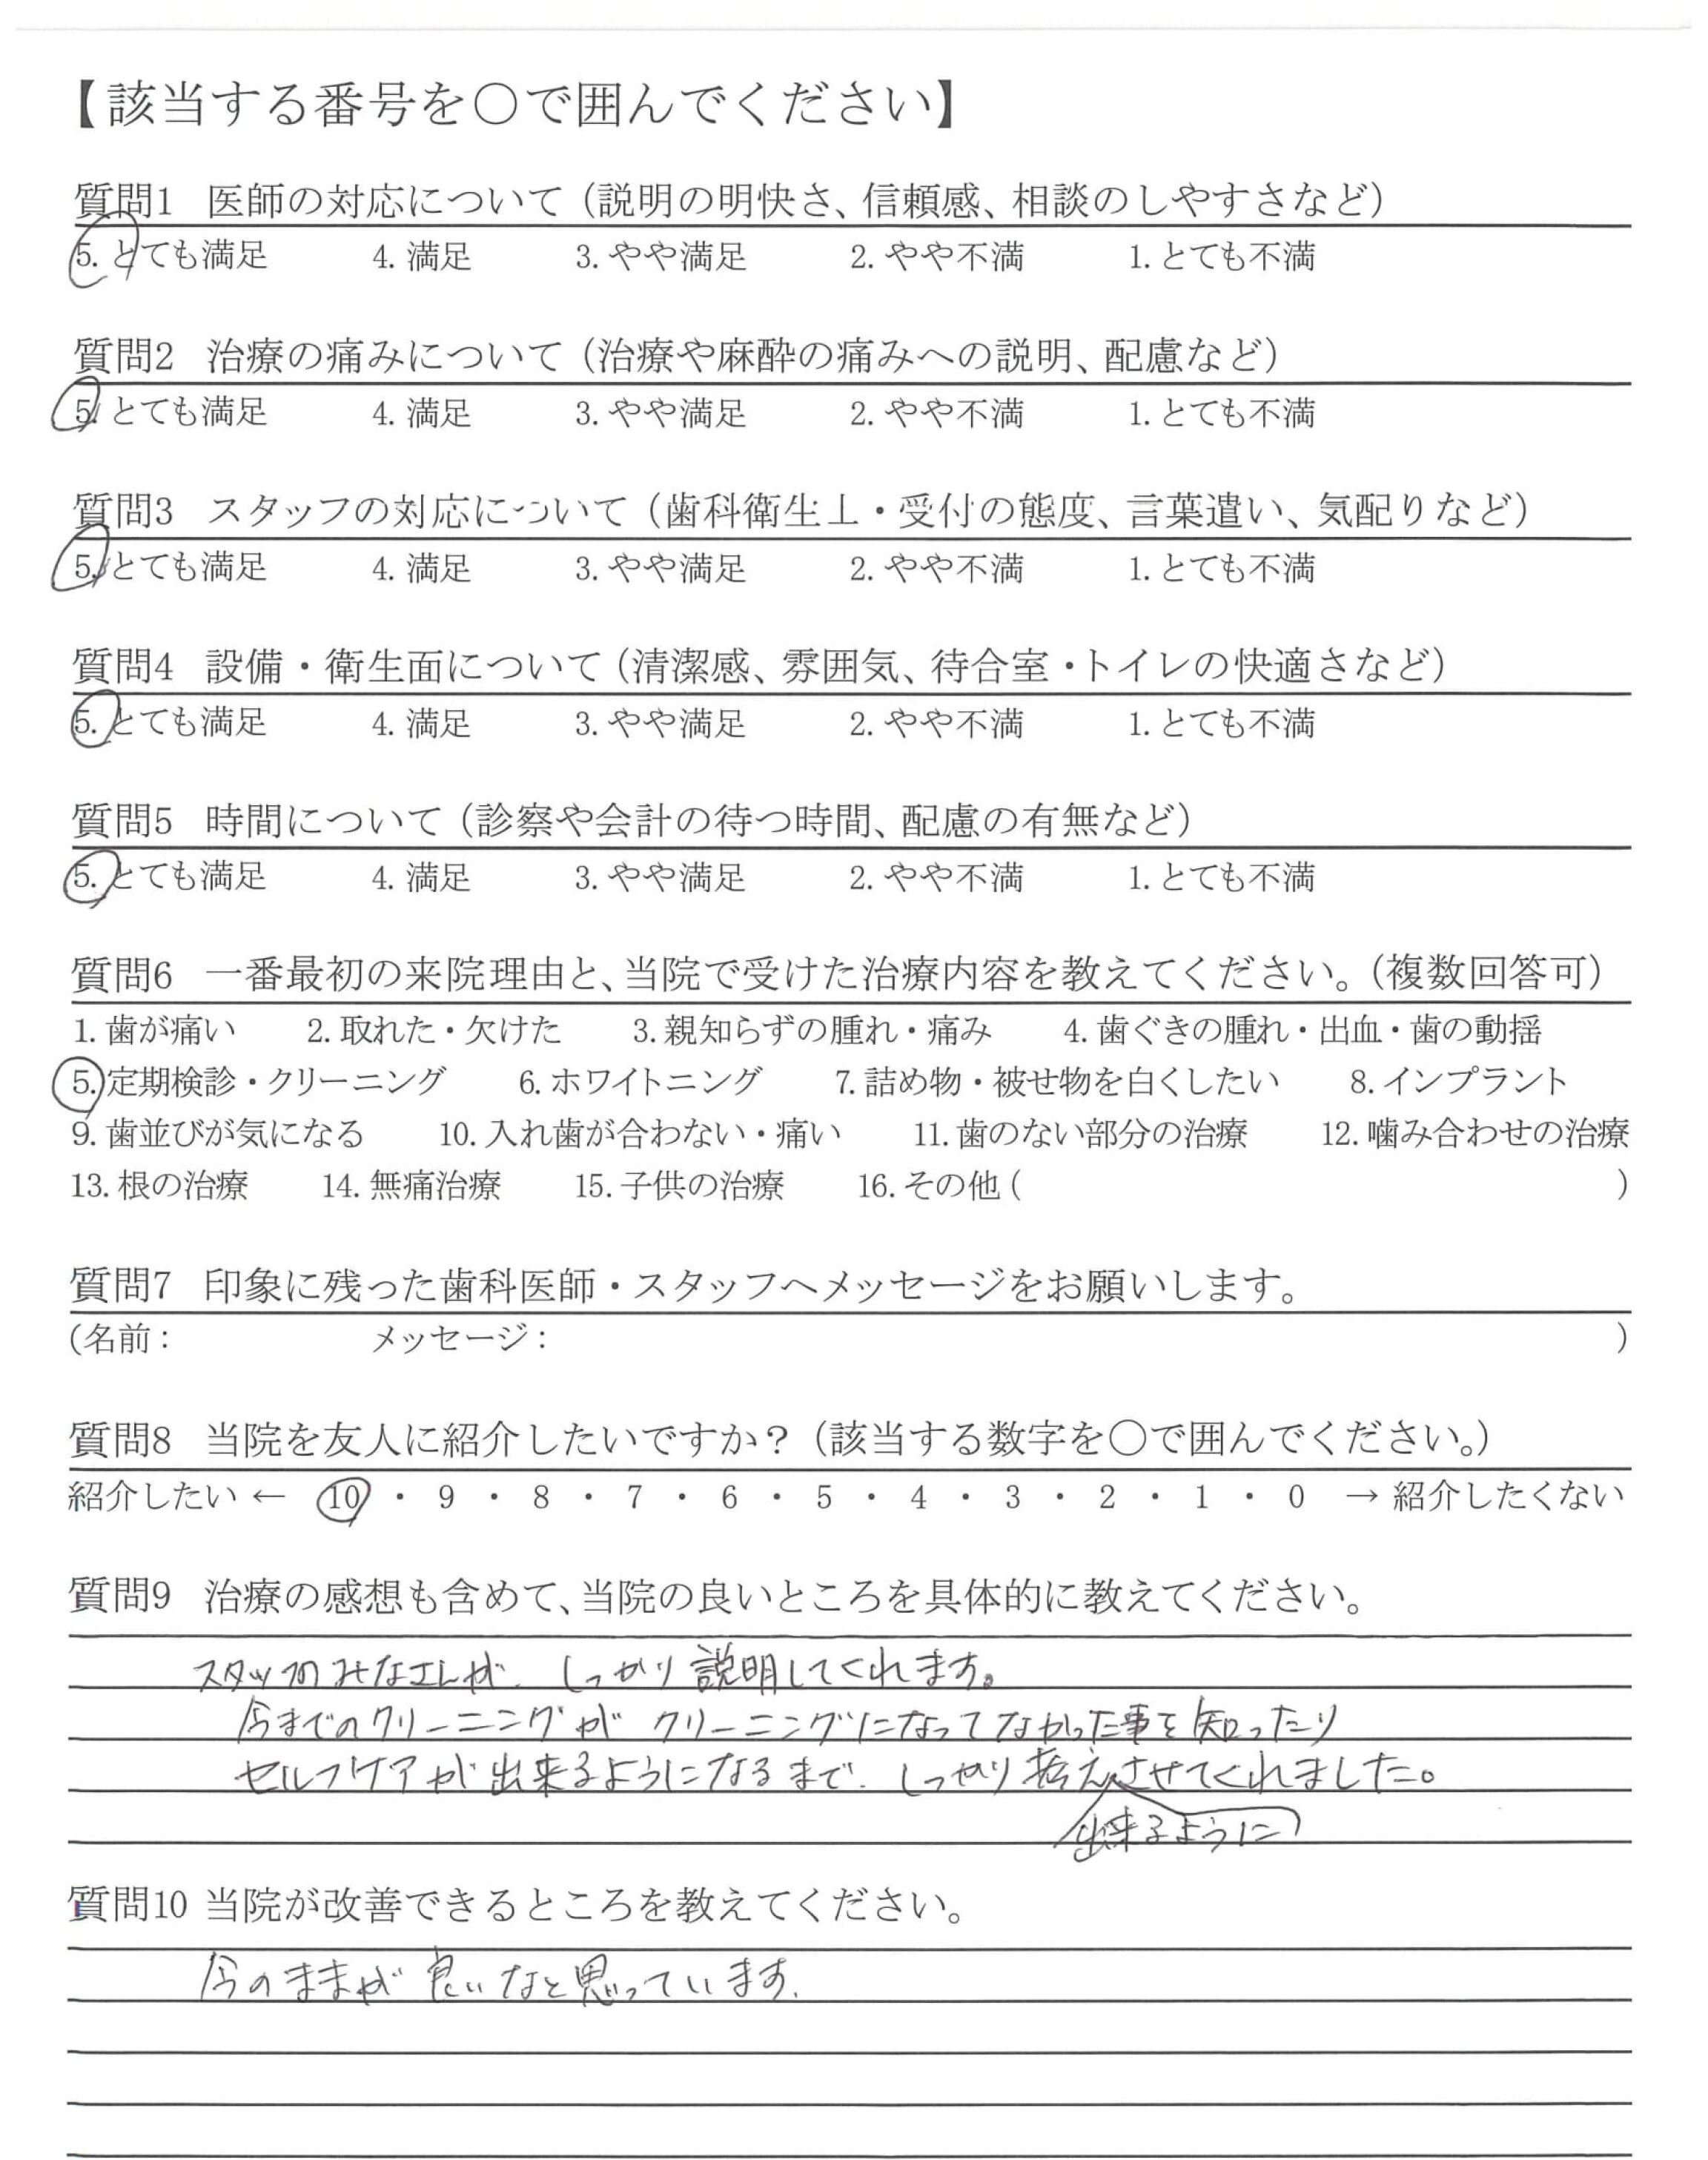 【該当する番号を○で囲んでください】
質問1 医師の対応について（説明の明快さ、信頼感、相談のしやすさなど）
5. とても満足 4. 満足 3. やや満足 2. やや不満 1. とても不満
質問2 治療の痛みについて（治療や麻酔の痛みへの説明、配慮など）
5. とても満足 4. 満足 3. やや満足 2. やや不満 1. とても不満
質問3 スタッフの対応について（歯科衛生士・受付の態度、言葉遣い、気配りなど）
5. とても満足 4. 満足 3. やや満足 2. やや不満 1. とても不満
質問4 設備・衛生面について（清潔感、雰囲気、待合室・トイレの快適さなど）
5. とても満足 4. 満足 3. やや満足 2. やや不満 1. とても不満
質問5 時間について（診察や会計の待つ時間、配慮の有無など）
5. とても満足 4. 満足 3. やや満足 2. やや不満 1. とても不満
質問6 一番最初の来院理由と、当院で受けた治療内容を教えてください。（複数回答可）
1. 歯が痛い 2. 取れた・欠けた 3. 親知らずの腫れ・痛み 4. 歯ぐきの腫れ・出血・歯の動揺
5. 定期検診・クリーニング 6. ホワイトニング 7. 詰め物・被せ物を白くしたい 8. インプラント
9. 歯並びが気になる 10. 入れ歯が合わない・痛い 11. 歯のない部分の治療 12. 噛み合わせの治療
13. 根の治療 14. 無痛治療 15. 子供の治療 16. その他 ( )
質問7 印象に残った歯科医師・スタッフへメッセージをお願いします。
(名前： メッセージ： )
質問8 当院を友人に紹介したいですか？（該当する数字を○で囲んでください。）
紹介したい ← 10 ・ 9 ・ 8 ・ 7 ・ 6 ・ 5 ・ 4 ・ 3 ・ 2 ・ 1 ・ 0 → 紹介したくない
質問9 治療の感想も含めて、当院の良いところを具体的に教えてください。
スタッフのみなさんが、しっかり説明してくれます。
今までのクリーニングが クリーニングになってなかった事を知ったり
セルフケアが出来るようになるまで、しっかり考えさせてくれました。
出来るように
質問10 当院が改善できるところを教えてください。
今のままが良いなと思っています。